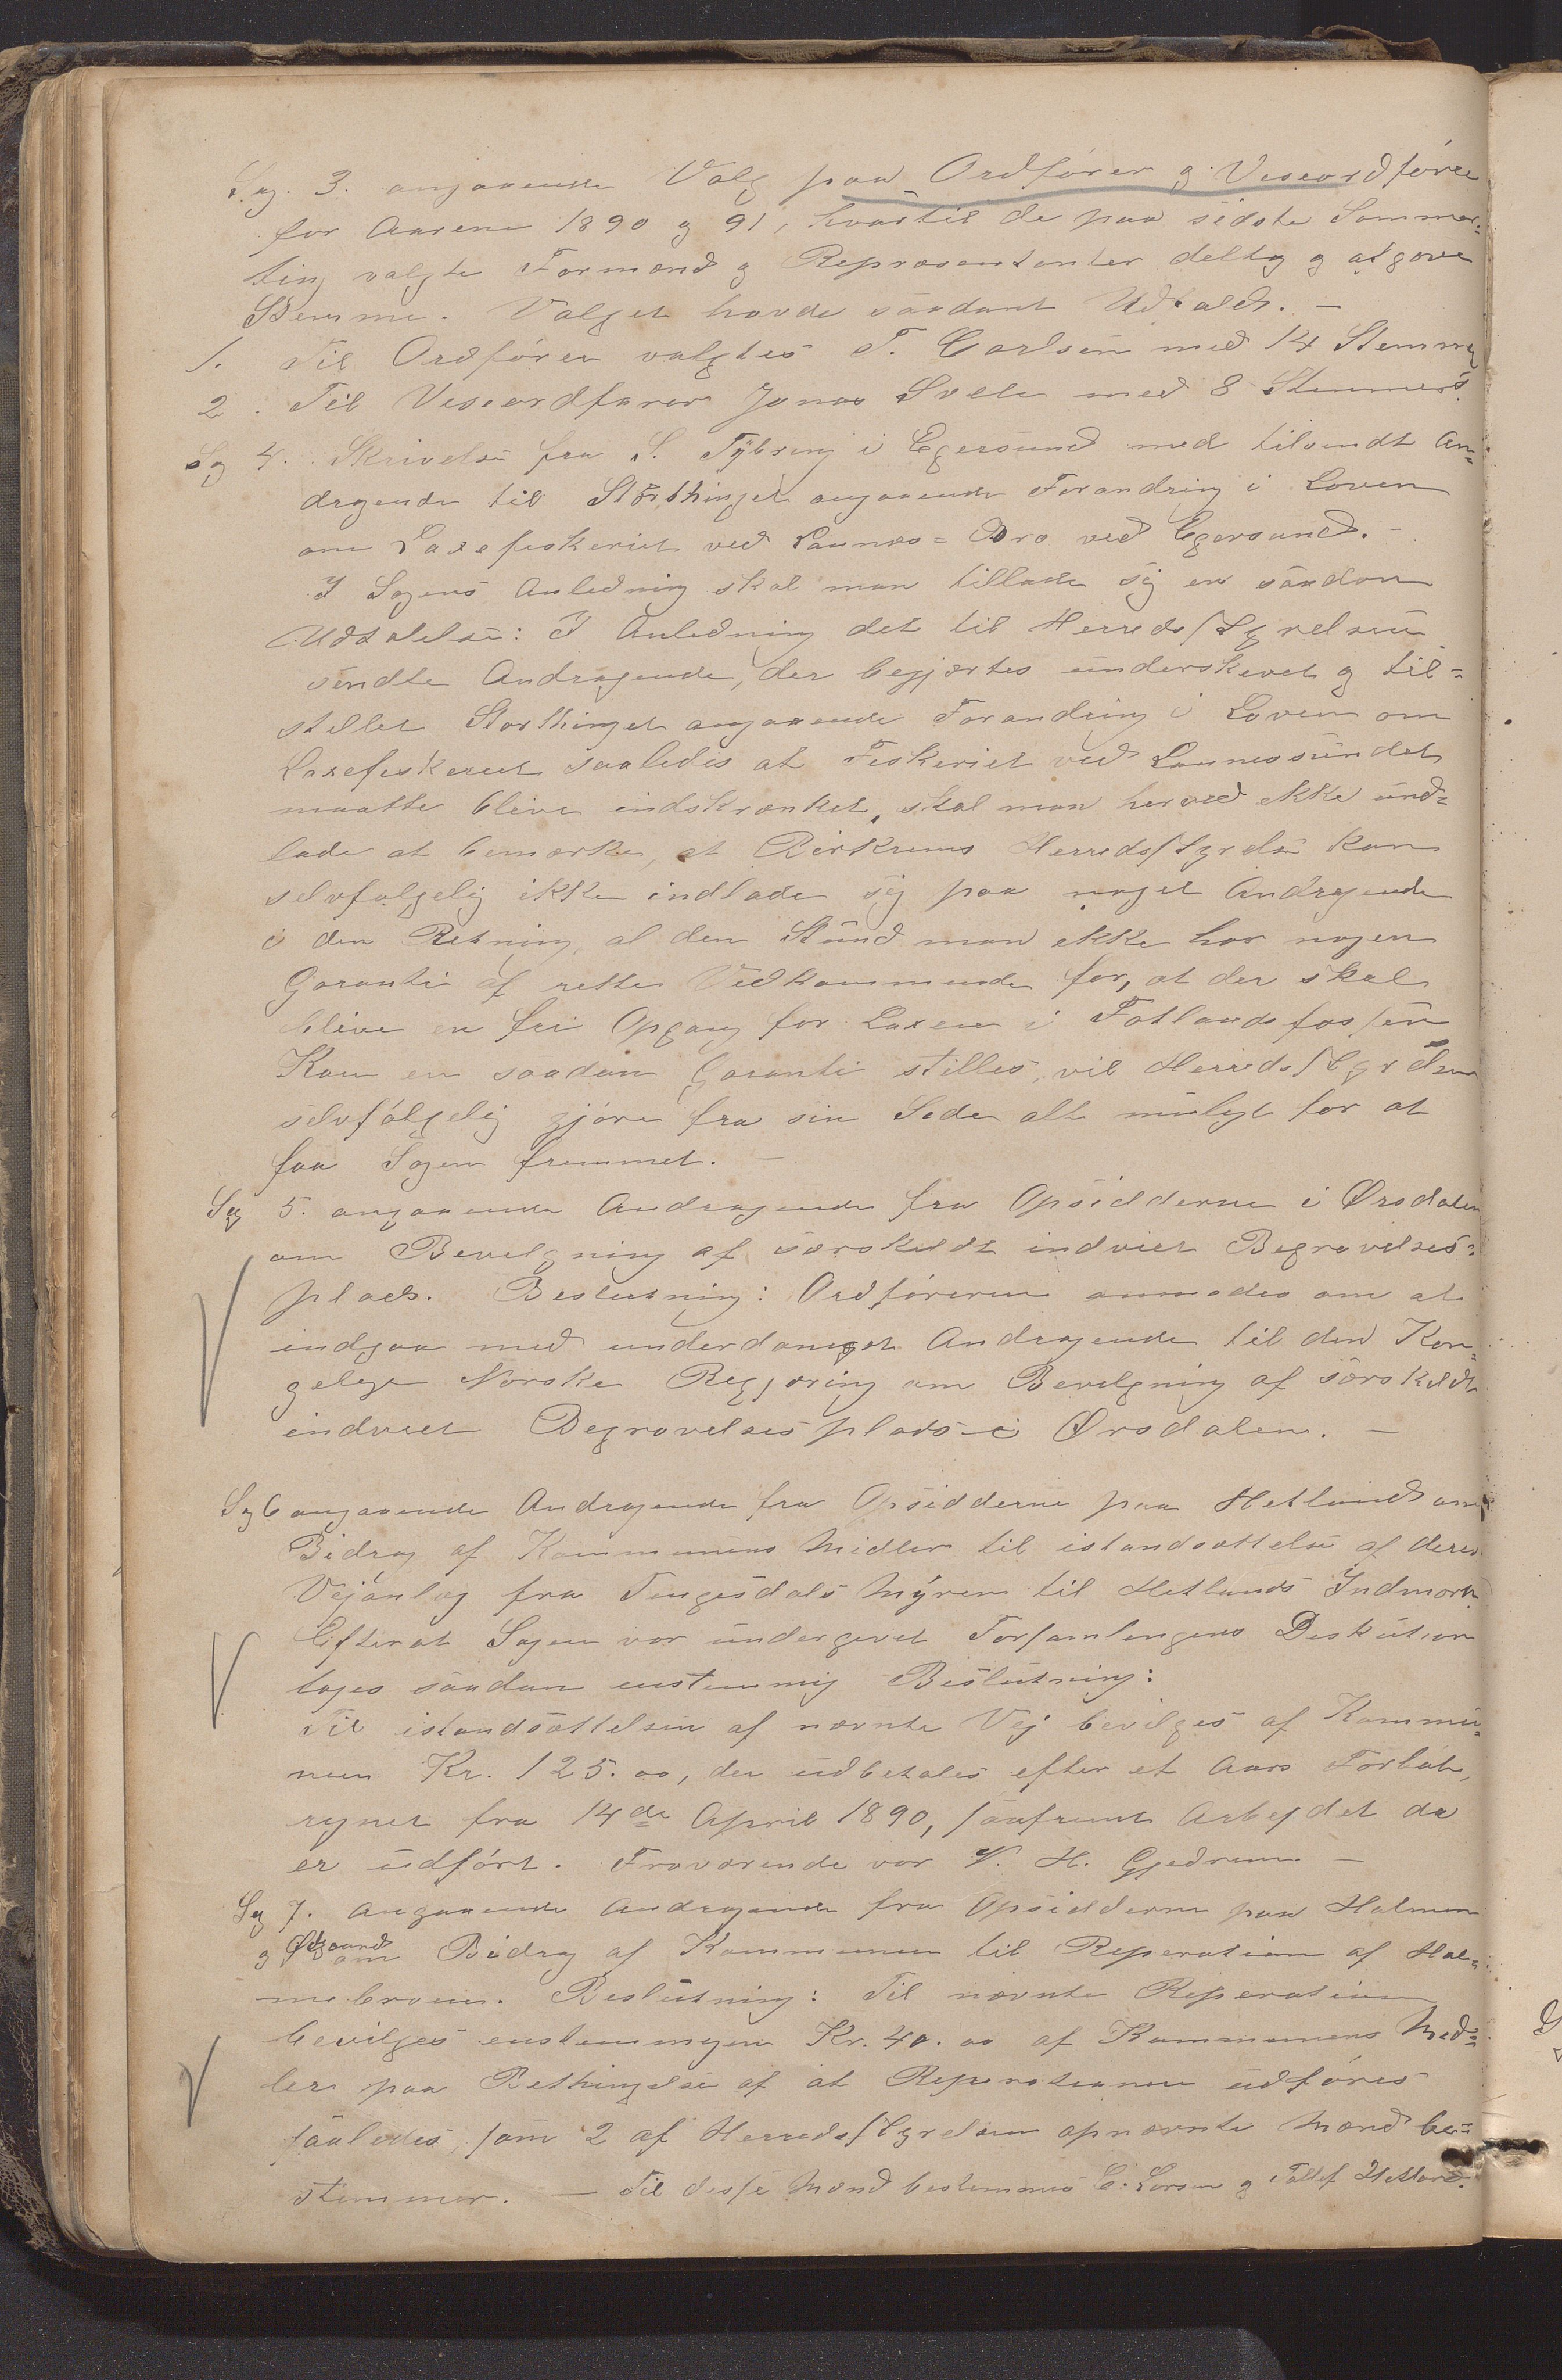 Sag. 3. angaaende Valg paa Ordfører og Viseordfører
for Aarene 1890 og 91, hvortil de paa sidste Sommer=
ting valgte Formænd og Repræsentanter deltog og afgave
Stemme. Valget havde saadant Udfald. –
1. Til Ordfører valgtes T. Carlsen med 14 Stemmer
2. Til Viseordfører Jonas Svele med 8 Stemmer.
Sag 4. Skrivelse fra S. Tybring i Egersund med tilsendt An=
dragende til Storthinget angaaende Forandring i Loven
om Laxefiskeriet ved Launæs=Bro ved Egersund. –
I Sagens Anledning skal man tillade sig en saadan
Udtalelse: I Anledning det til Herredsstyrelsen
sendte Andragende, der begjærtes underskrevet og til=
stillet Storthinget angaaende Forandring i Loven om
Laxefiskeriet saaledes at Fiskeriet ved Launessundet
maatte blive indskrænket, skal man herved ikke und=
lade at bemærke, at Birkrems Herredsstyrelse kan
selvfølgelig ikke indlade sig paa noget Andragende
i den Retning, al den Stund man ikke har nogen
Garanti af rette Vedkommende for, at der skal
blive en fri Opgang for Laxen i Fotlandsfossen
Kan en saadan Garanti stilles, vil Herredsstyrelsen
selvfølgelig gjøre fra sin Side alt muligt for at
faa Sagen fremmet. –
Sag 5. angaaende Andragende fra Opsidderne i Ørsdalen
om Bevilgning af særskildt indviet Begravelses=
plads. Beslutning: Ordføreren anmodes om at
indgaa med underdanigst Andragende til den Kon=
gelige Norske Regjæring om Bevilgning af særskildt
indviet Begravelsesplads i Ørsdalen. –
Sag 6 angaaende Andragende fra Opsidderne paa Hetland om
Bidrag af Kommunens Midler til istandsættelse af deres
Vejanlæg fra Tengesdals Myren til Hetlands Indmark.
Efterat Sagen var undergivet Forsamlingens Diskution
toges saadan enstemmig Beslutning:
Til istandsættelsen af nævnte Vej bevilges af Kommu=
nen Kr. 125.00, der udbetales efter et Aars Forløb,
regnet fra 14de April 1890, saafremt Arbejdet da
er udført. Fraværende var V. H. Gjedrem. –
Sag 7. Angaaende Andragende fra Opsidderne paa Holmen
og Ødegaard om Bidrag af Kommunen til Reperation af Hol=
mebroen. Beslutning: Til nævnte Reperation
bevilges enstemmigen Kr. 40.00 af Kommunens Mid=
ler paa Bethingelse af at Reperationen udføres
saaledes, som 2 af Herredsstyrelsen opnævnte Mænd be=
stemmer. – Til disse Mænd bestemmes C. Larsen og Tollef Hetland.